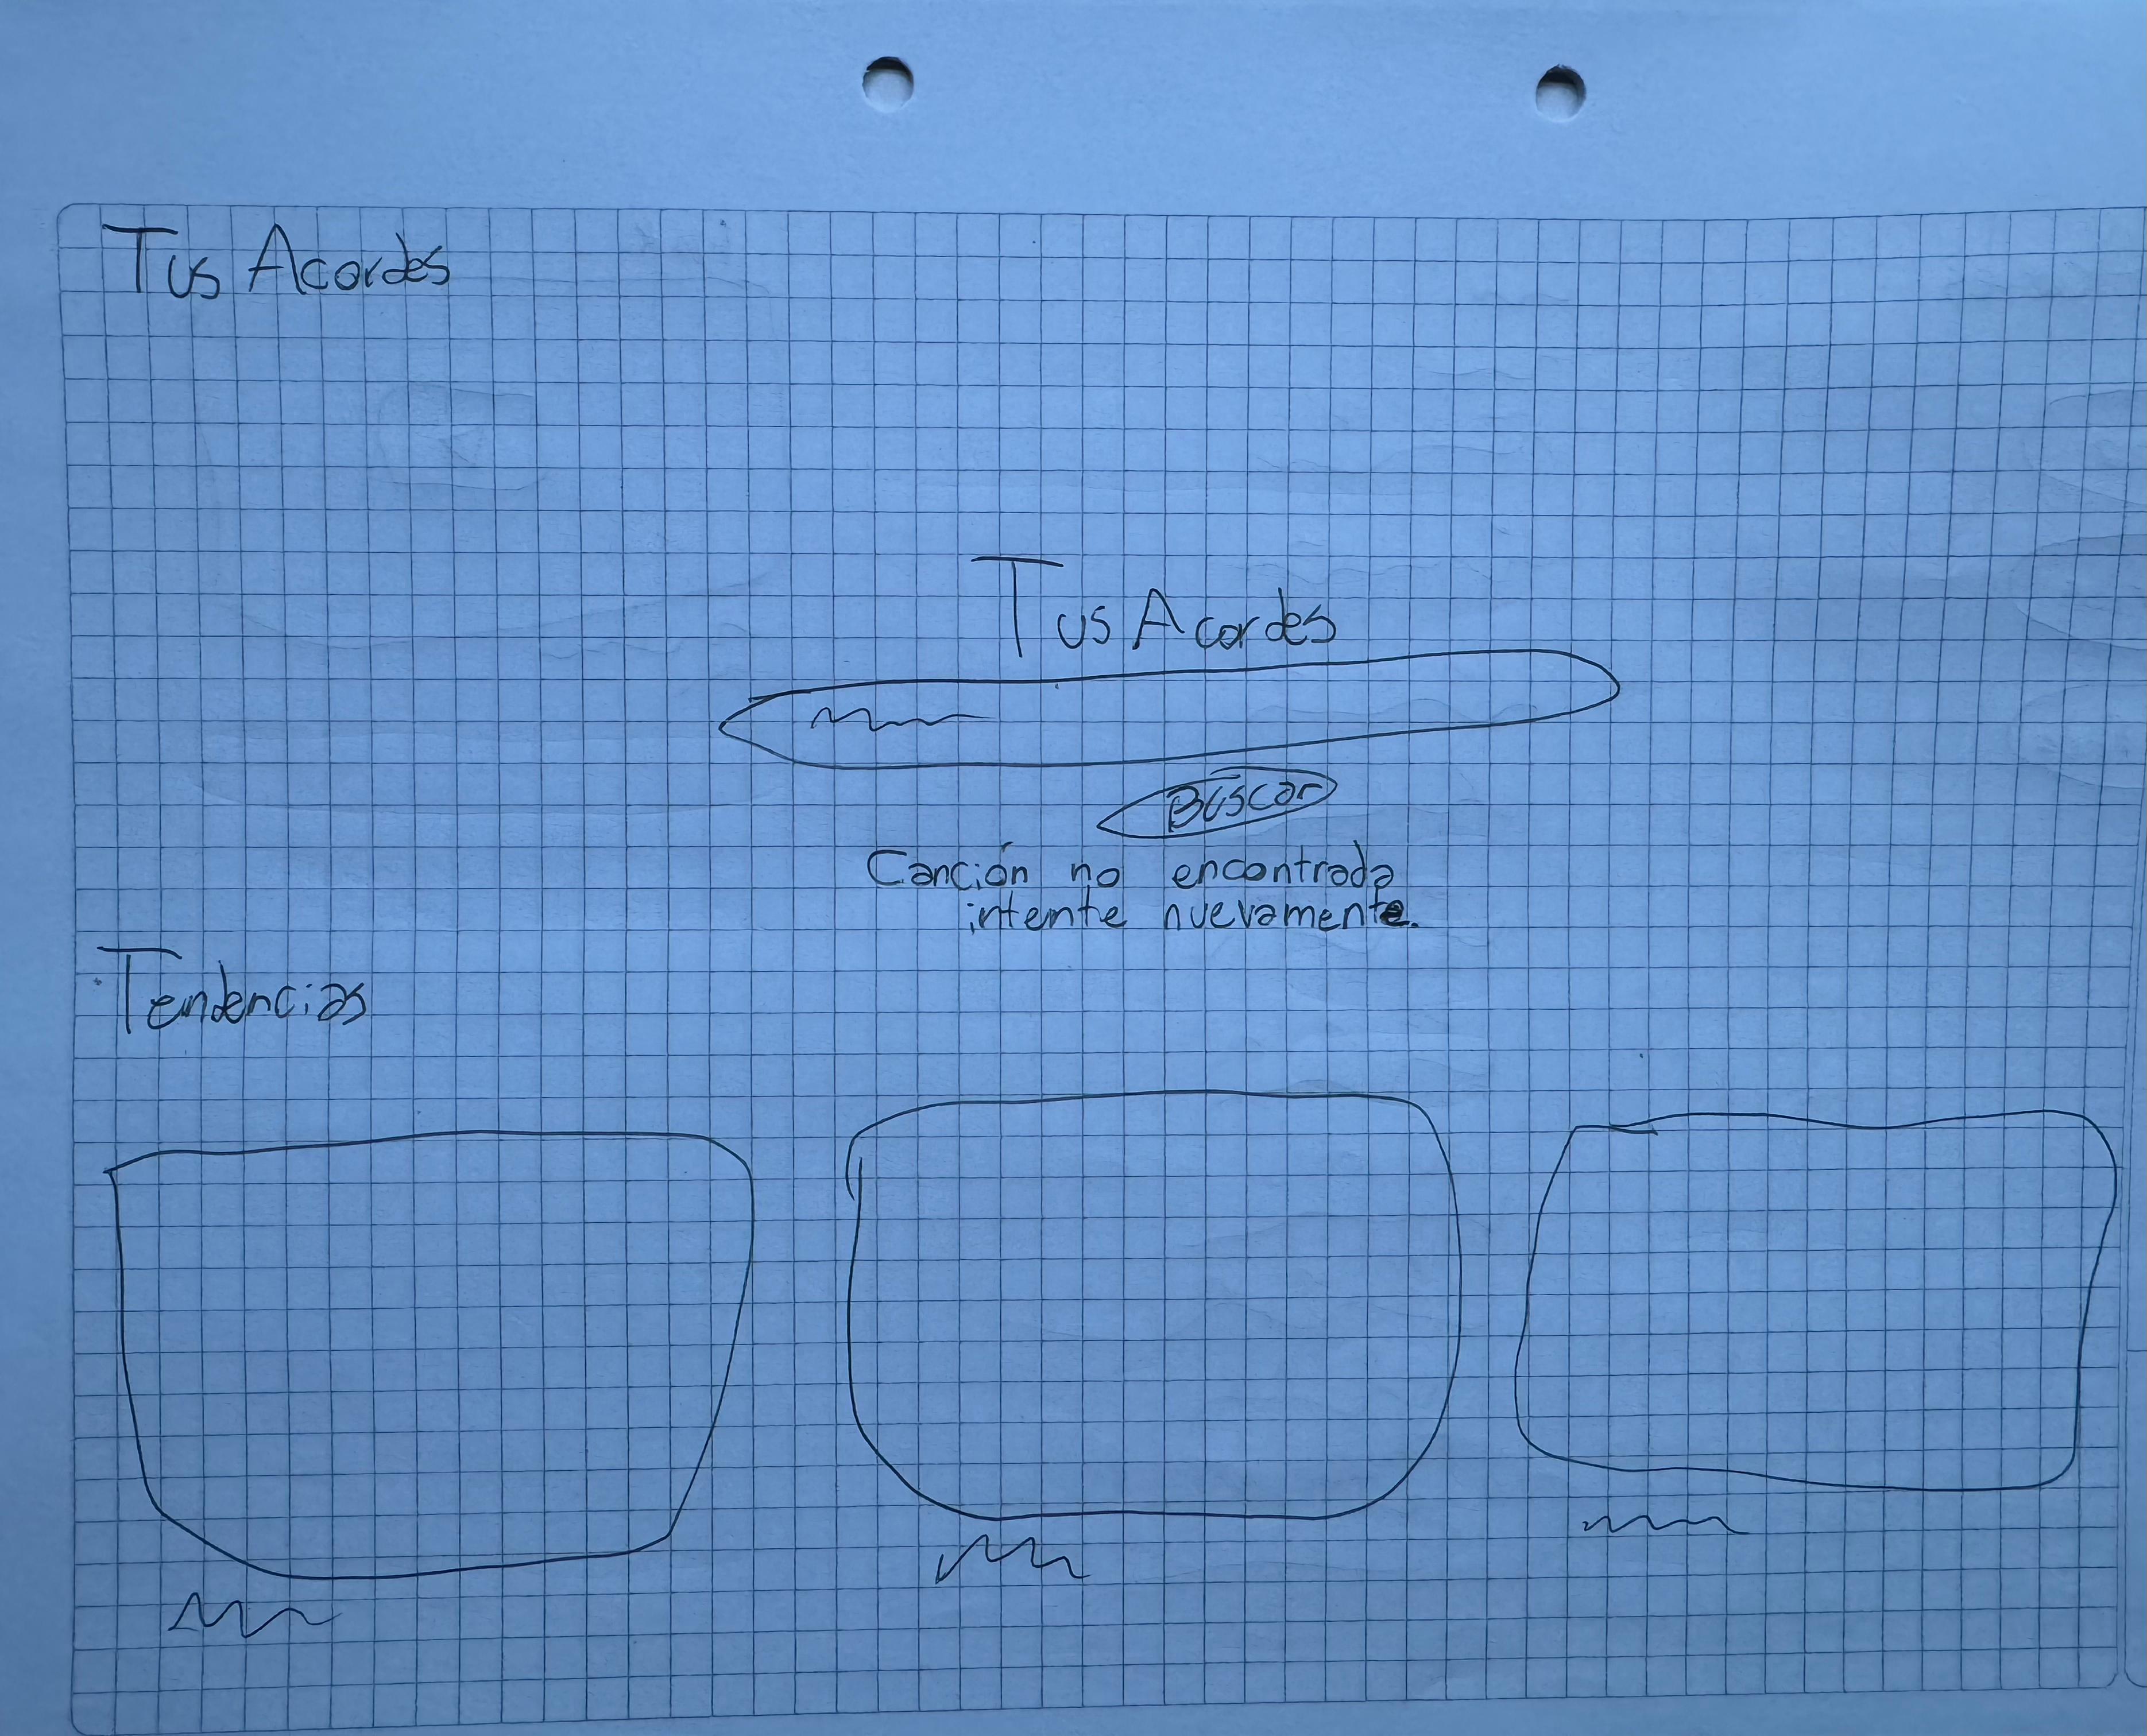 Tus Acordes
Tus Acordes
Buscar
Canción no encontrada
intente nuevamente.
Tendencias